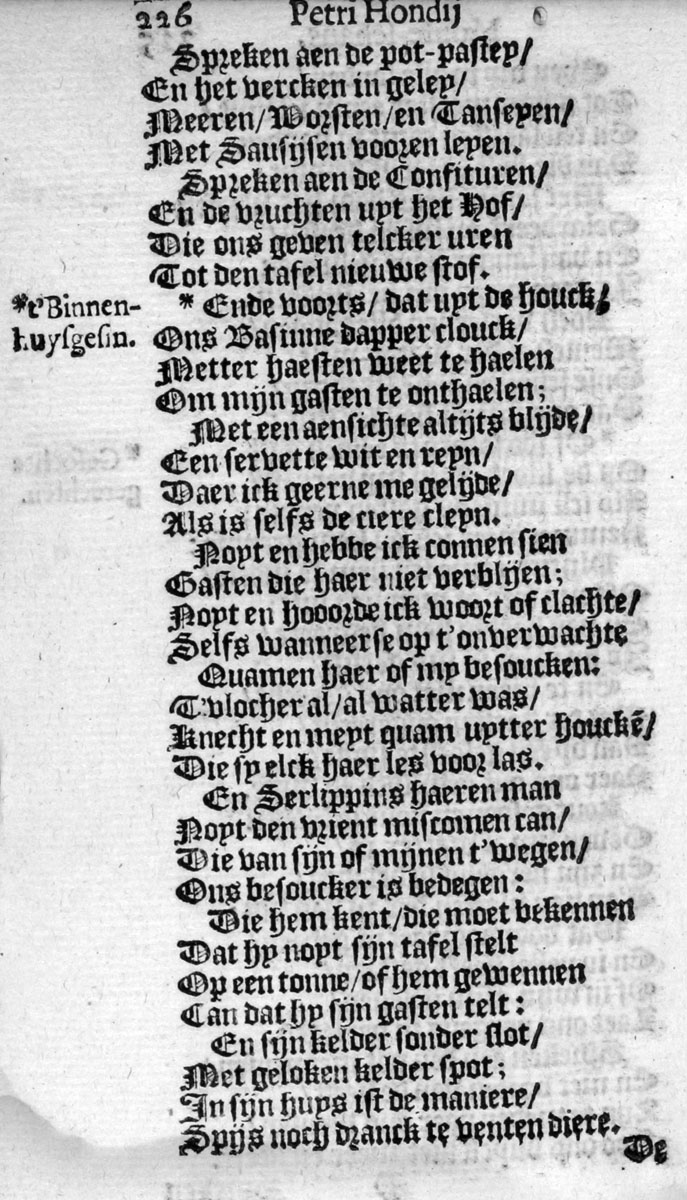 226 Petri Hondij
Spreken aen de pot-pastey/
En het vercken in geley/
Meeren/Worsten/en Tanseyen/
Met Sausijsen vooren leyen.
Spreken aen de Confituren/
En de vruchten uyt het Hof/
Die ons geven telcker uren
Tot den tafel nieuwe stof.
*t'Binnen-
huysgesin.
* Ende voorts/ dat uyt de houck/
Ons Basinne dapper clouck/
Metter haesten weet te haelen
Om mijn gasten te onthaelen;
Met een aensichte altijts blijde/
Een servette wit en reyn/
Daer ick geerne me gelijde/
Als is selfs de ciere cleyn.
Noyt en hebbe ick connen sien
Gasten die haer niet verblijen;
Noyt en hooorde ick woort of clachte/
Selfs wanneer se op t'onverwachte
Quamen haer of my besoucken:
T'vlocher al/al watter was/
Knecht en meyt quam uytter houckē/
Die sy elck haer les voor las.
En Serlippins haeren man
Noyt den vrient miscomen can/
Die van sijn of mijnen t'wegen/
Ons besoucker is bedegen:
Die hem kent/die moet bekennen
Dat hy noyt sijn tafel stelt
Op een tonne/of hem gewennen
Can dat hy sijn gasten telt:
En sijn kelder sonder slot/
Met geloken kelder spot;
In sijn huys ist de maniere/
Spijs noch dranck te venten diere.
De